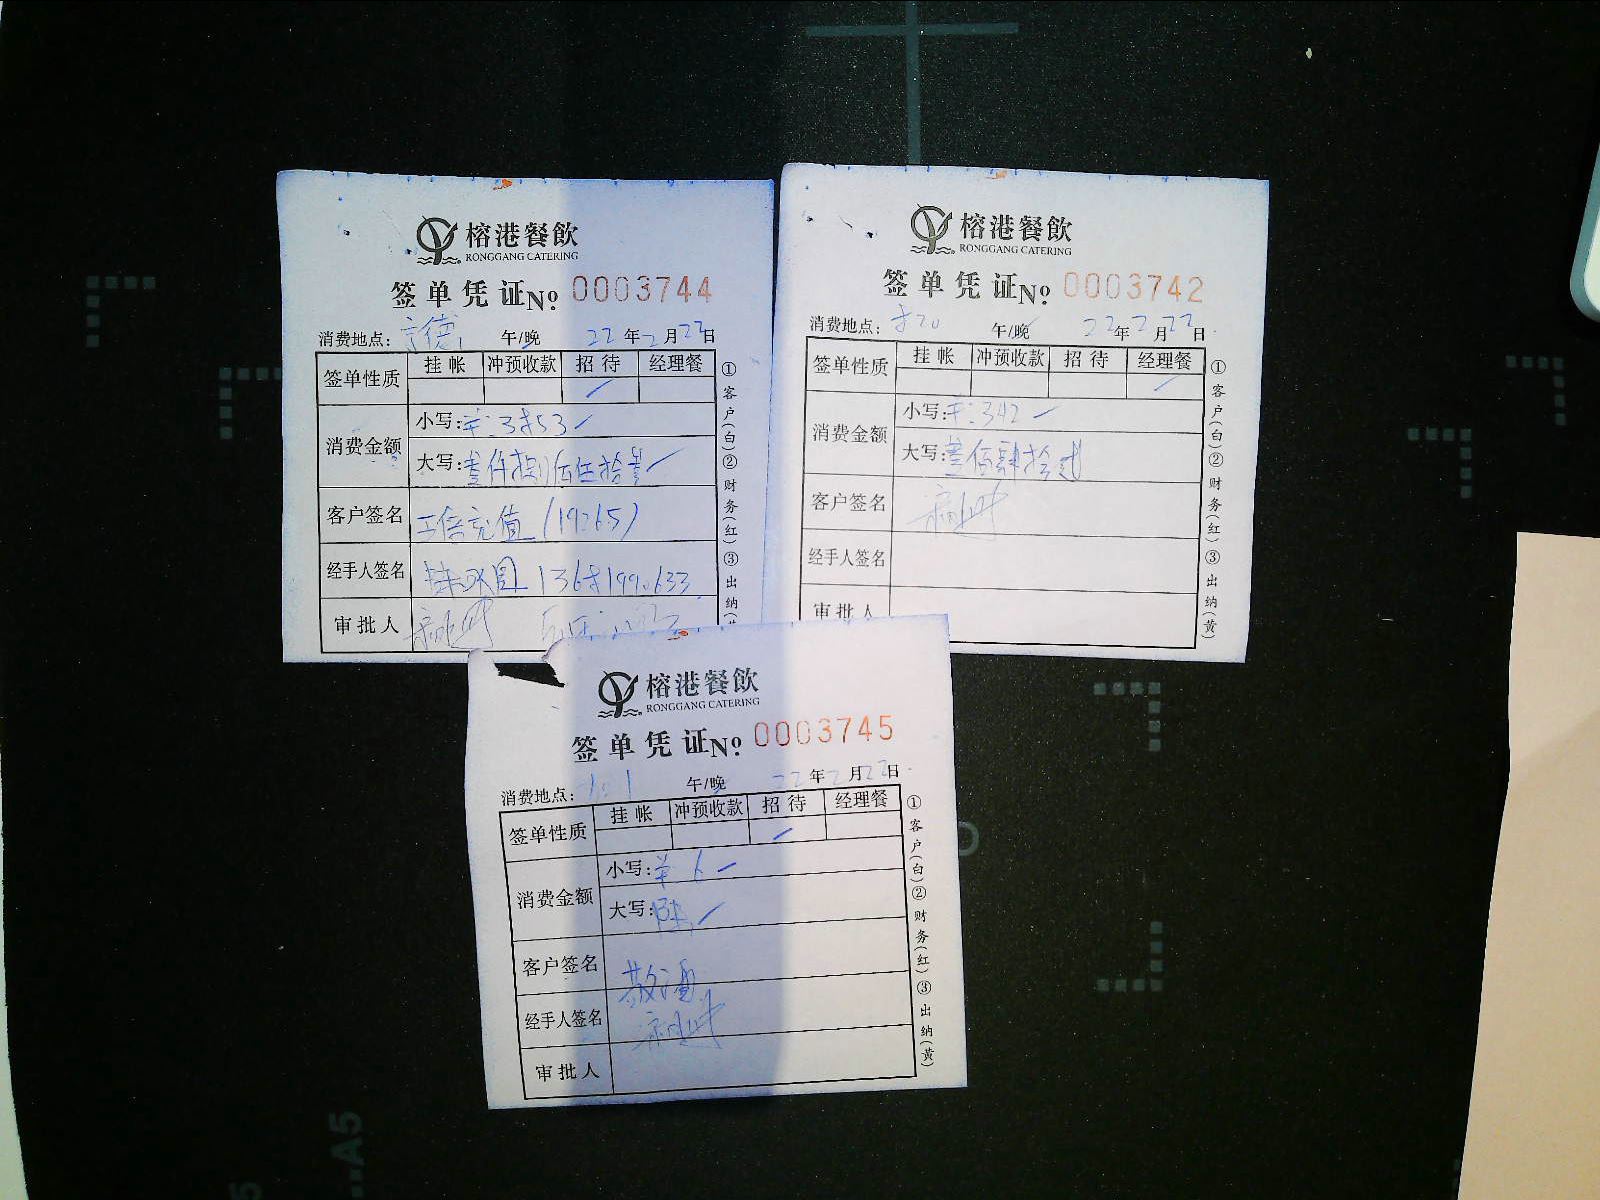 榕港餐飲
RONGGANG CATERING
签单凭证 No. 0003744
消费地点: 午/晚 22年2月22日
签单性质 挂帐 冲预收款 招待 经理餐
✓
消费金额 小写: ¥:3853
大写: 叁仟捌佰伍拾叁
客户签名 充值 (19265)
经手人签名
审批人
①客户(白)②财务(红)③出纳(
榕港餐飲
RONGGANG CATERING
签单凭证 No. 0003742
消费地点: 午/晚 22年2月22日
签单性质 挂帐 冲预收款 招待 经理餐
✓
消费金额 小写: ¥:342
大写: 叁佰肆拾贰
客户签名
经手人签名
审批人
①客户(白)②财务(红)③出纳(黄)
榕港餐飲
RONGGANG CATERING
签单凭证 No. 0003745
消费地点: 午/晚 22年2月22日
签单性质 挂帐 冲预收款 招待 经理餐
✓
消费金额 小写: ¥ 6
大写: 陆
客户签名 散酒
经手人签名
审批人
①客户(白)②财务(红)③出纳(黄)
A5